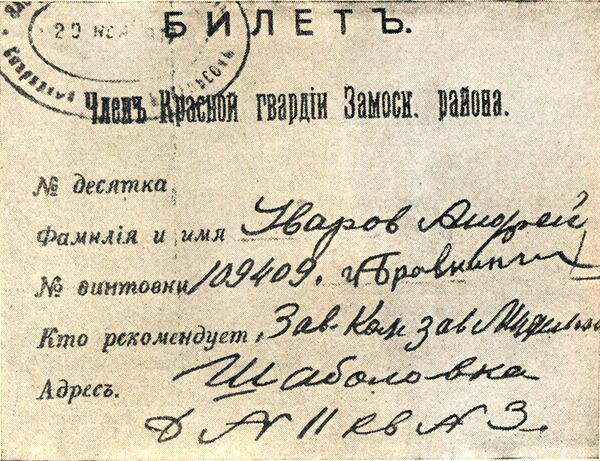 20 НОЯ
БИЛЕТЪ.
Членъ Красной гвардіи Замоск. района.
№ десятка
Фамилія и имя Уваров Андрей
№ винтовки 109409. и Бравнинг
Кто рекомендует, Зав. Ком зав
Адресъ. Шаболовка
Д № 11 кв № 3.